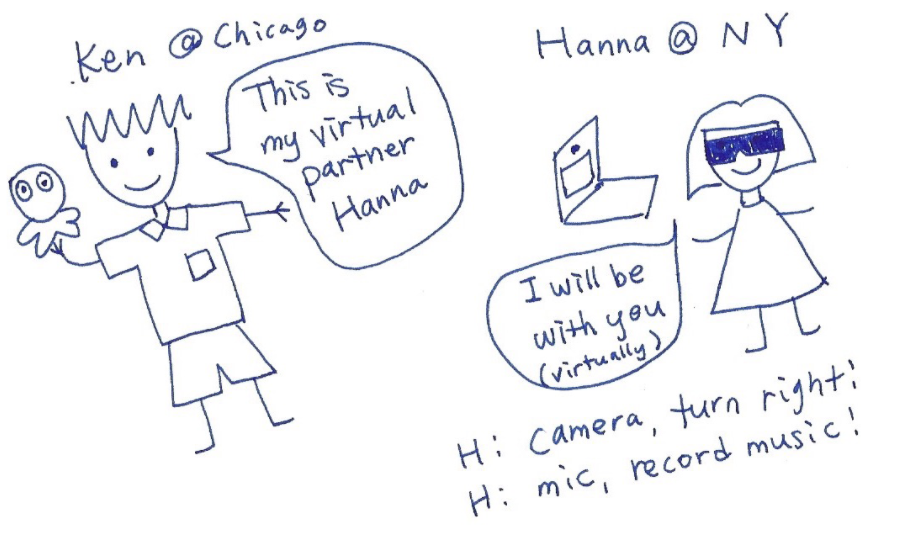 Ken @ Chicago
This is
my virtual
partner
Hanna
Hanna @ NY
I will be
with you
(virtually)
H: camera, turn right!
H: mic, record music!